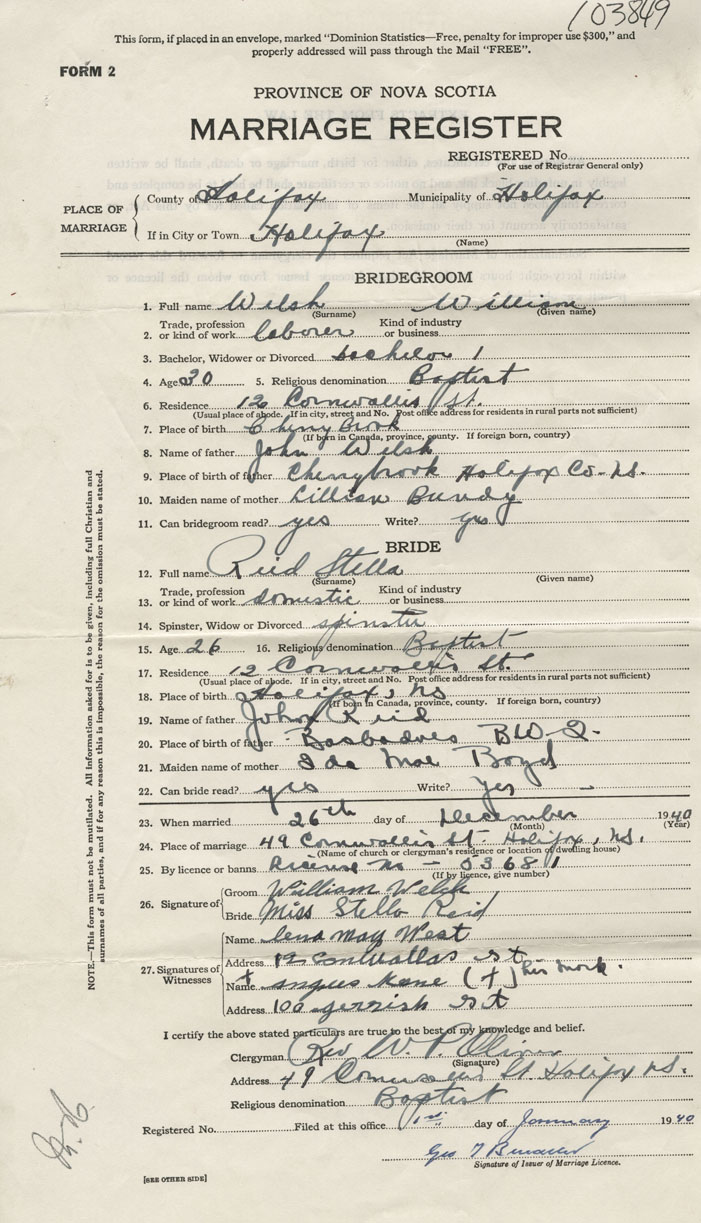 103849
This form, if placed in an envelope, marked "Dominion Statistics—Free, penalty for improper use $300," and
properly addressed will pass through the Mail "FREE".
FORM 2
PROVINCE OF NOVA SCOTIA
MARRIAGE REGISTER
REGISTERED No.
(For use of Registrar General only)
PLACE OF MARRIAGE
County of Halifax Municipality of Halifax
If in City or Town Halifax
(Name)
BRIDEGROOM
1. Full name Welsh William
(Surname) (Given name)
2. Trade, profession or kind of work laborer Kind of industry or business
3. Bachelor, Widower or Divorced bachelor 1
4. Age 30 5. Religious denomination Baptist
6. Residence 12 Cornwallis St.
(Usual place of abode. If in city, street and No. Post office address for residents in rural parts not sufficient)
7. Place of birth Cherry Brook
(If born in Canada, province, county. If foreign born, country)
8. Name of father John Welsh
9. Place of birth of father Cherrybrook Halifax Co. N.S.
10. Maiden name of mother Lillian Bundy
11. Can bridegroom read? yes Write? yes
BRIDE
12. Full name Reid Stella
(Surname) (Given name)
13. Trade, profession or kind of work domestic Kind of industry or business
14. Spinster, Widow or Divorced spinster
15. Age 26 16. Religious denomination Baptist
17. Residence 12 Cornwallis St.
(Usual place of abode. If in city, street and No. Post office address for residents in rural parts not sufficient)
18. Place of birth Halifax, NS
(If born in Canada, province, county. If foreign born, country)
19. Name of father John Reid
20. Place of birth of father Barbadoes B.W.I.
21. Maiden name of mother Ida Mae Boyd
22. Can bride read? yes Write? Yes
23. When married 26th day of December 1940
(Month) (Year)
24. Place of marriage 49 Cornwallis St. Halifax, NS.
(Name of church or clergyman's residence or location of dwelling house)
25. By licence or banns License No — 53681
(If by licence, give number)
26. Signature of
Groom William Welsh
Bride Miss Stella Reid
27. Signatures of Witnesses
Name lena may West
Address 12 cornwallas st
Name angus Kane (+) his mark.
Address 100 gerrish st
I certify the above stated particulars are true to the best of my knowledge and belief.
Clergyman Rev W. P. Oliver
(Signature)
Address 49 Cornwallis St Halifax NS.
Religious denomination Baptist
Registered No. Filed at this office 1st day of January 1940
Geo
Signature of Issuer of Marriage Licence.
[SEE OTHER SIDE]
NOTE.—This form must not be mutilated. All information asked for is to be given, including full Christian and
surnames of all parties, and if for any reason this is impossible, the reason for the omission must be stated.